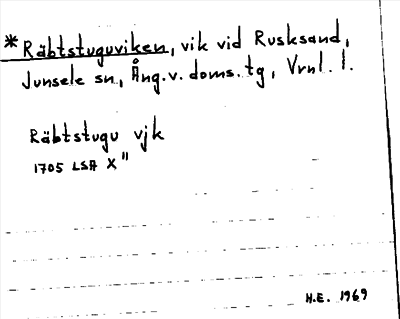 * Räbtstuguviken, vik vid Rusksand,
Junsele sn., Ång.v. doms. tg, Vrnl. l.
Räbtstugu vjk
1705 LSA X"
H.E. 1969